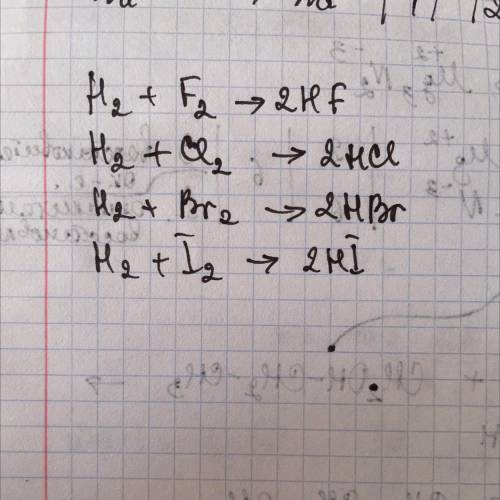 H₂ + F₂ → 2HF
H₂ + Cl₂ → 2HCl
H₂ + Br₂ → 2HBr
H₂ + I₂ → 2HI